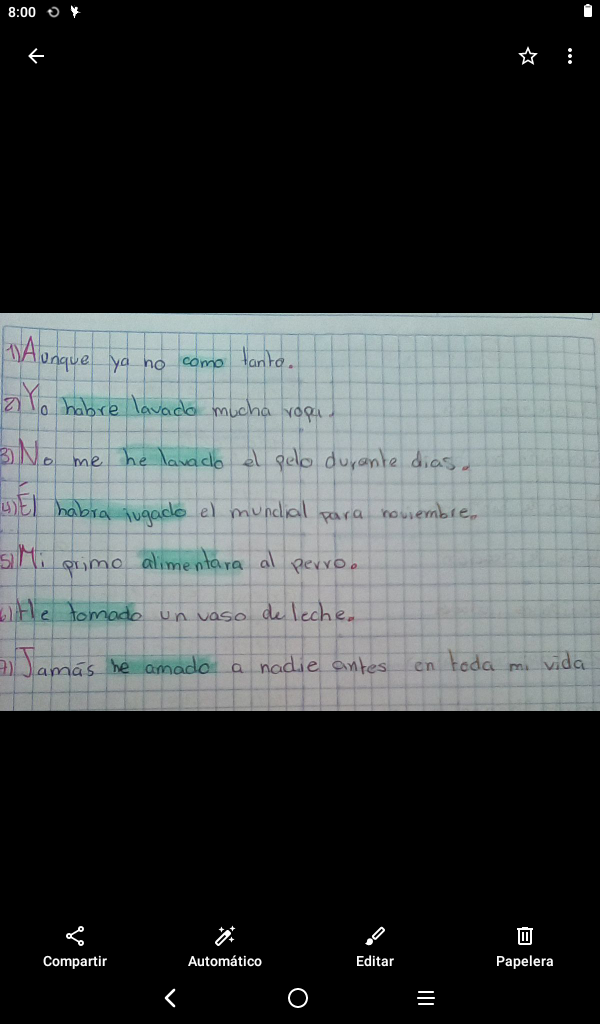 8:00
1) Aunque ya no como tanto.
2) Yo habre lavado mucha ropa.
3) No me he lavado el pelo durante dias.
4) Él habra jugado el mundial para noviembre.
5) Mi primo alimentara al perro.
6) He tomado un vaso de leche.
7) Jamás he amado a nadie antes en toda mi vida
Compartir Automático Editar Papelera